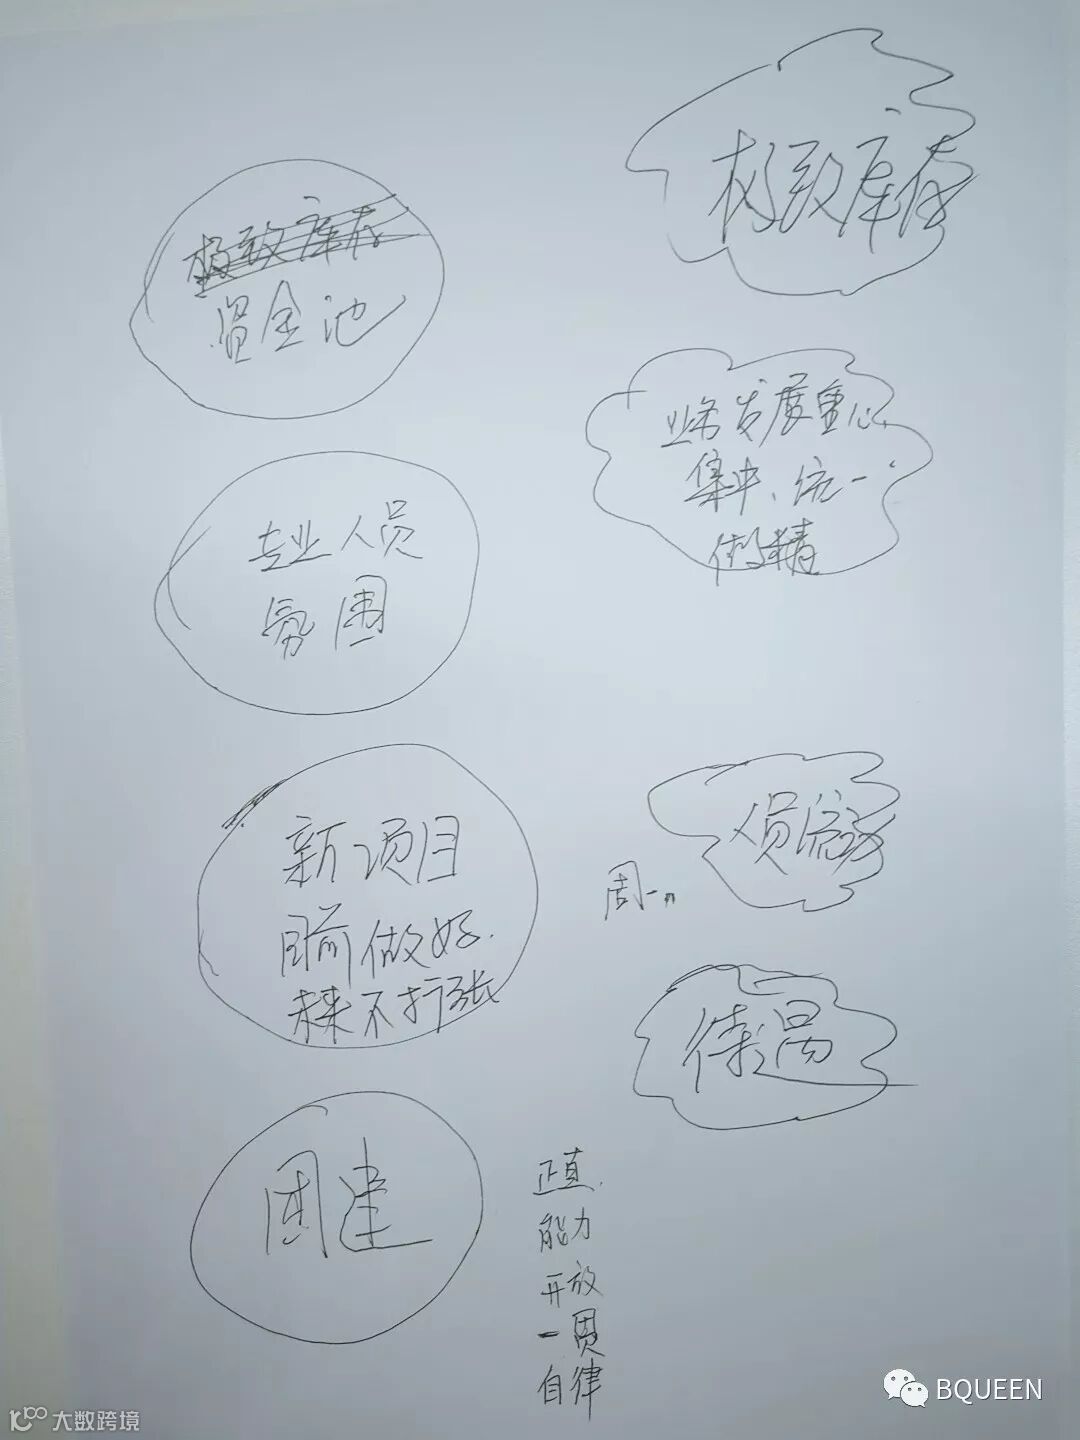 极致库存
资金池
专业人员
氛围
新项目
目前做好.
未来不扩张
团建
极致库存
业务发展重心
集中、统一
做精
人员流动
周一
待遇
正直.
能力
开放
一贯
自律
BQUEEN
大数跨境